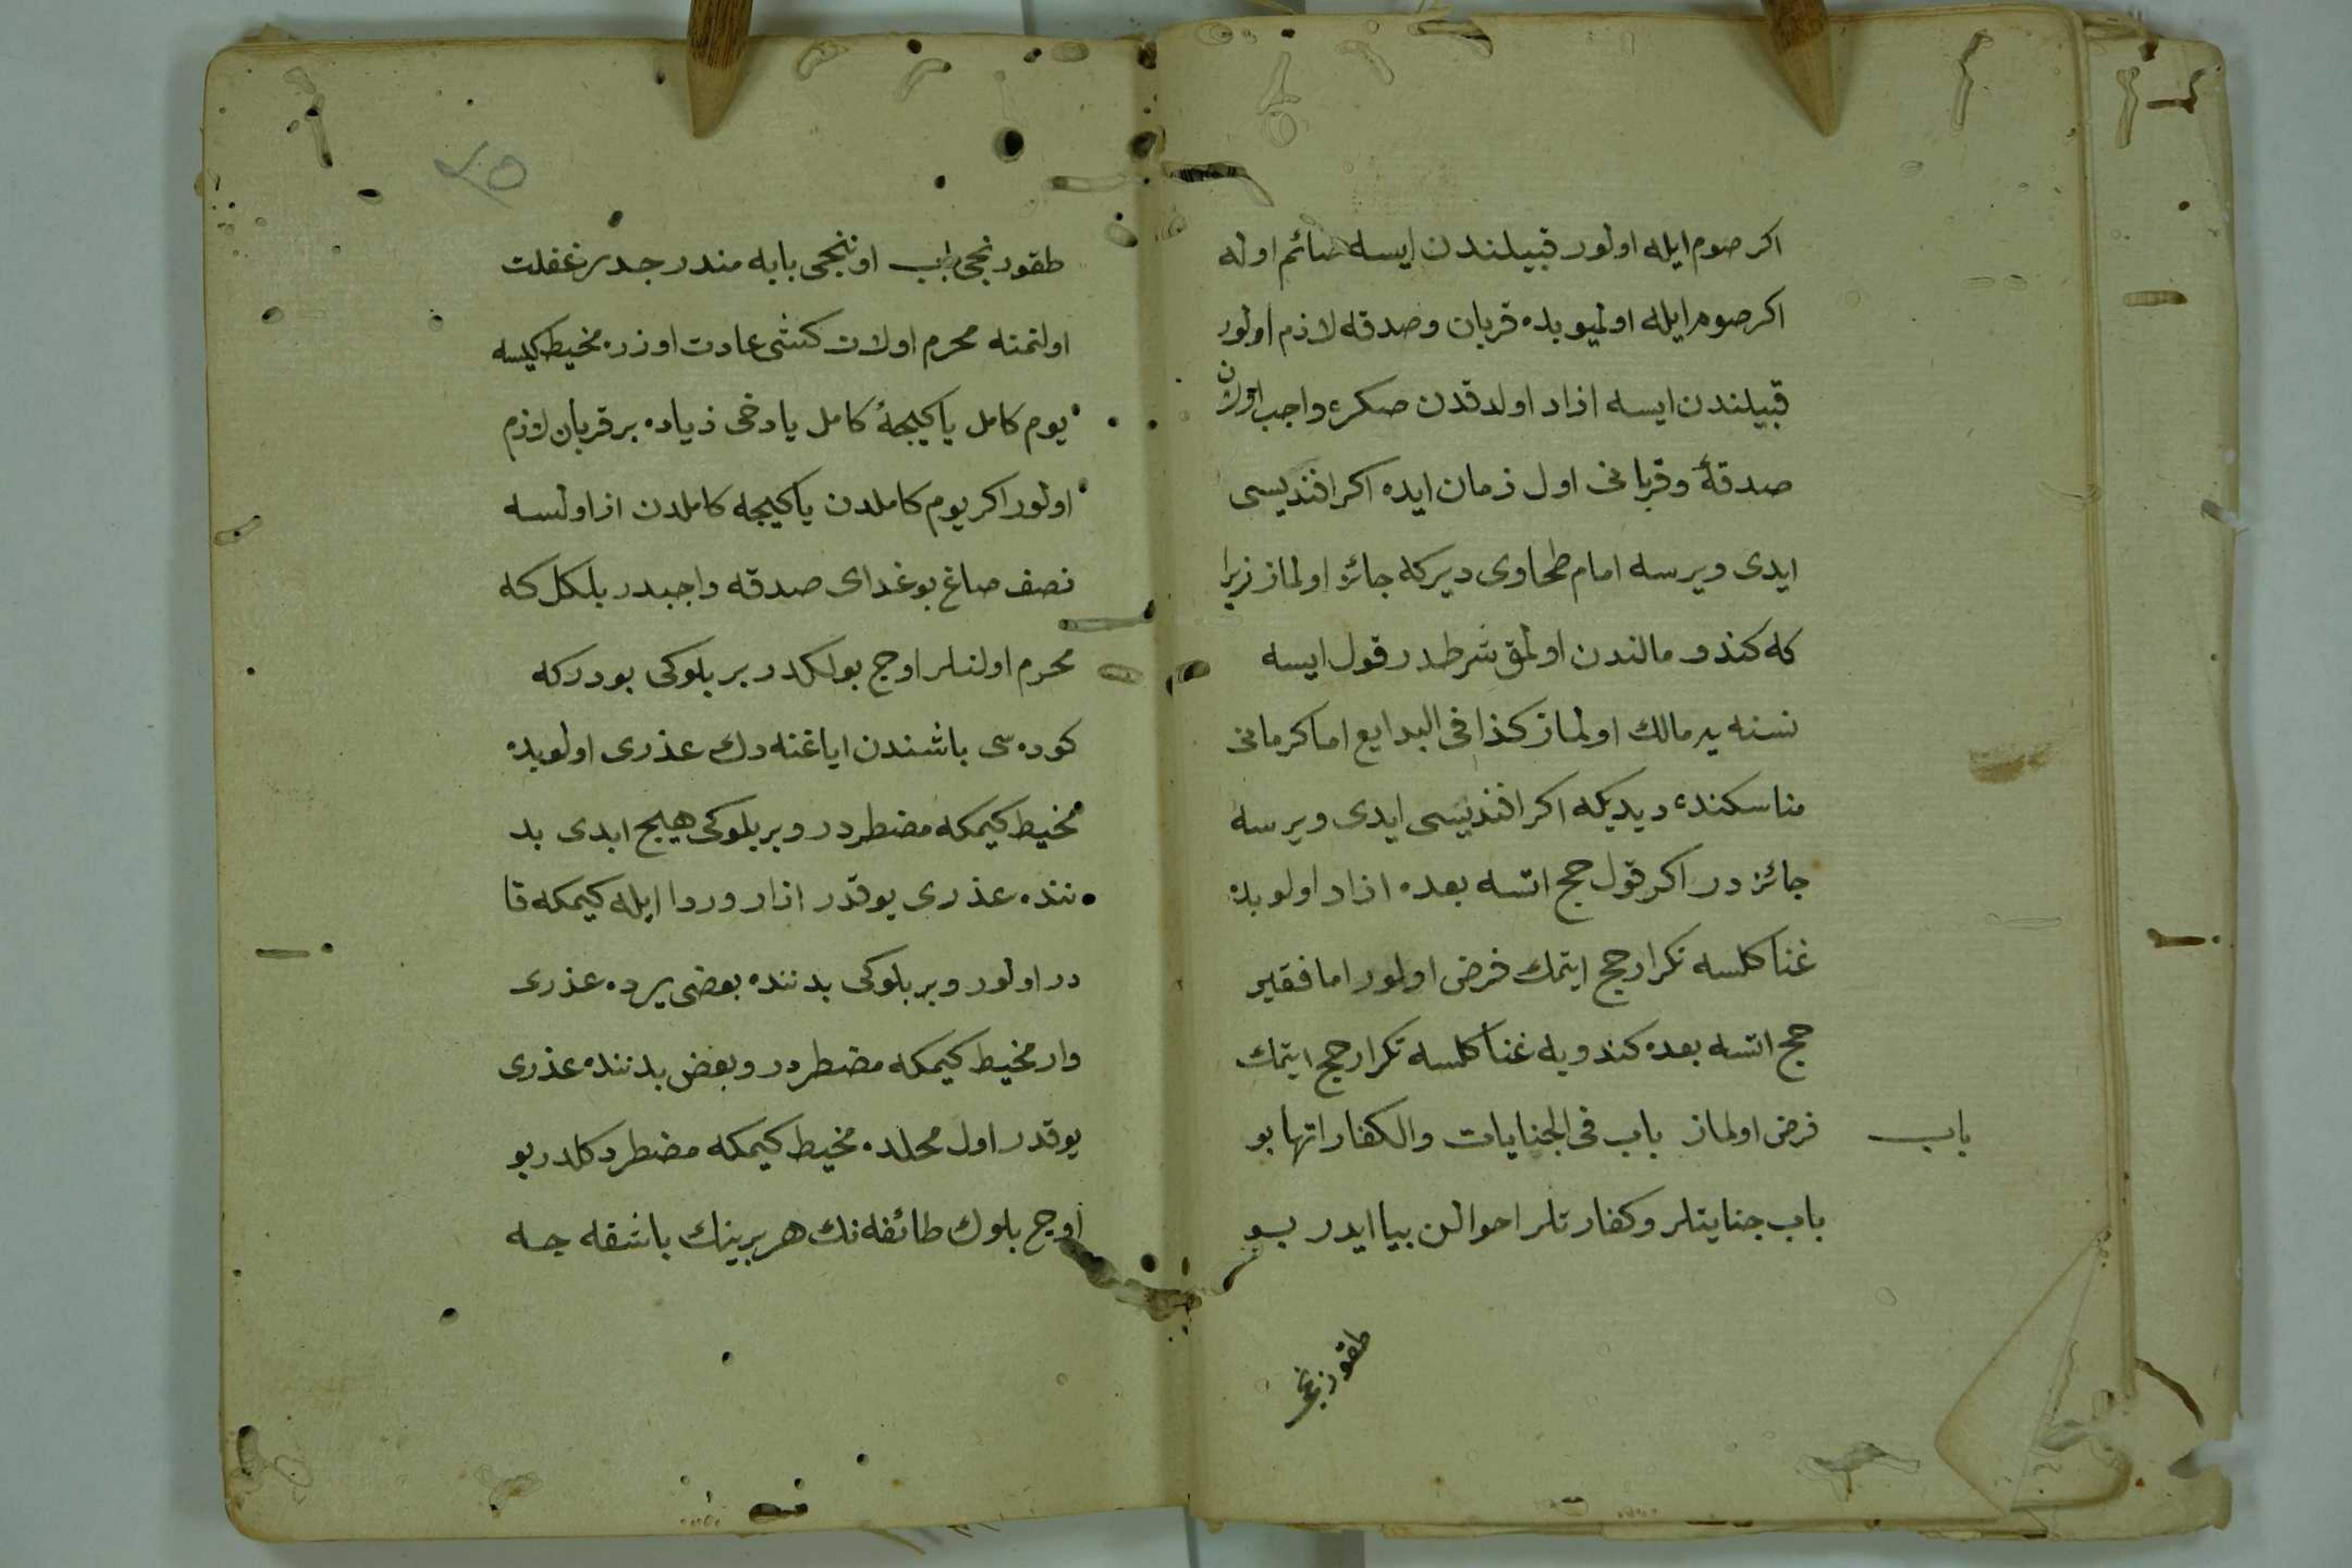 اكر صوم ايله اولور قبيلندن ايسه صائم اوله
اكر صوم ايله اولميوبده قربان وصدقه لازم اولور
قبيلندن ايسه ازاد اولدقدن صكره واجب اولان
صدقهٔ وقربانى اول زمان ايده اكر افنديسى
ايدى ويرسه امام طحاوى ديركه جائز اولماز زيرا
كه كندو مالندن اولمق شرطدر قول ايسه
نسنه يه مالك اولماز كذا فى البدايع اما كرمانى
مناسكنده ديديكه اكر افنديسى ايدى ويرسه
جائز در اكر قول حج اتسه بعده ازاد اولوبده
غنا كلسه تكرار حج ايتمك فرض اولور اما فقير
حج اتسه بعده كندويه غنا كلسه تكرار حج ايتمك
فرض اولماز باب فى الجنايات والكفاراتها بو
باب
باب جنايتلر وكفارتلر احوالن بيا ايدر بو
طقوزنجى
طقوزنجى باب اوننجى بابه مندرجدر غفلت
اولنمنه محرم اولان كشى عادت اوزره مخيط كيسه
يوم كامل يا كيجهٔ كامل يا دخى زياده بر قربان لازم
اولور اكر يوم كاملدن يا كيجه كاملدن از اولسه
نصف صاغ بوغداى صدقه واجبدر بلكل كه
محرم اولنلر اوچ بولكدر بر بلوكى بودركه
كوده سى باشندن اياغنه دك عذرى اولوبده
مخيط كيمكه مضطردر وبر بلوكى هيچ ابدى بد
ننده عذرى يوقدر ازار وردا ايله كيمكه قا
در اولور وبر بلوكى بدننده بعضى يرده عذرى
وار مخيط كيمكه مضطردر وبعض بدننده عذرى
يوقدر اول محلده مخيط كيمكه مضطر دكلدر بو
اوچ بلوك طائفه نك هر برينك باشقه جه
٤٥